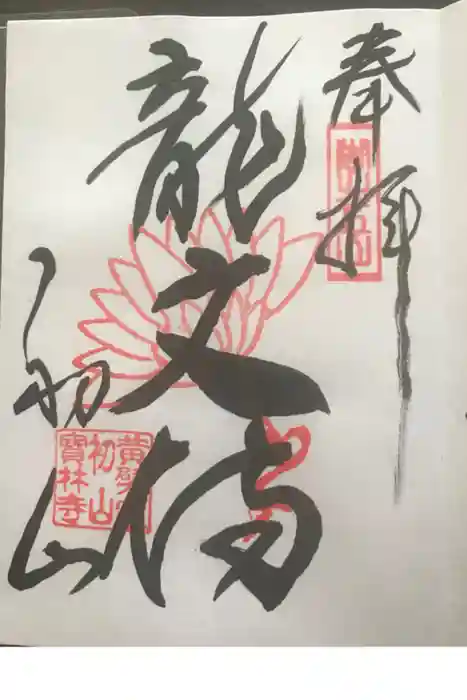 奉拝
龍文
初山
黄檗宗
初山
寶林寺